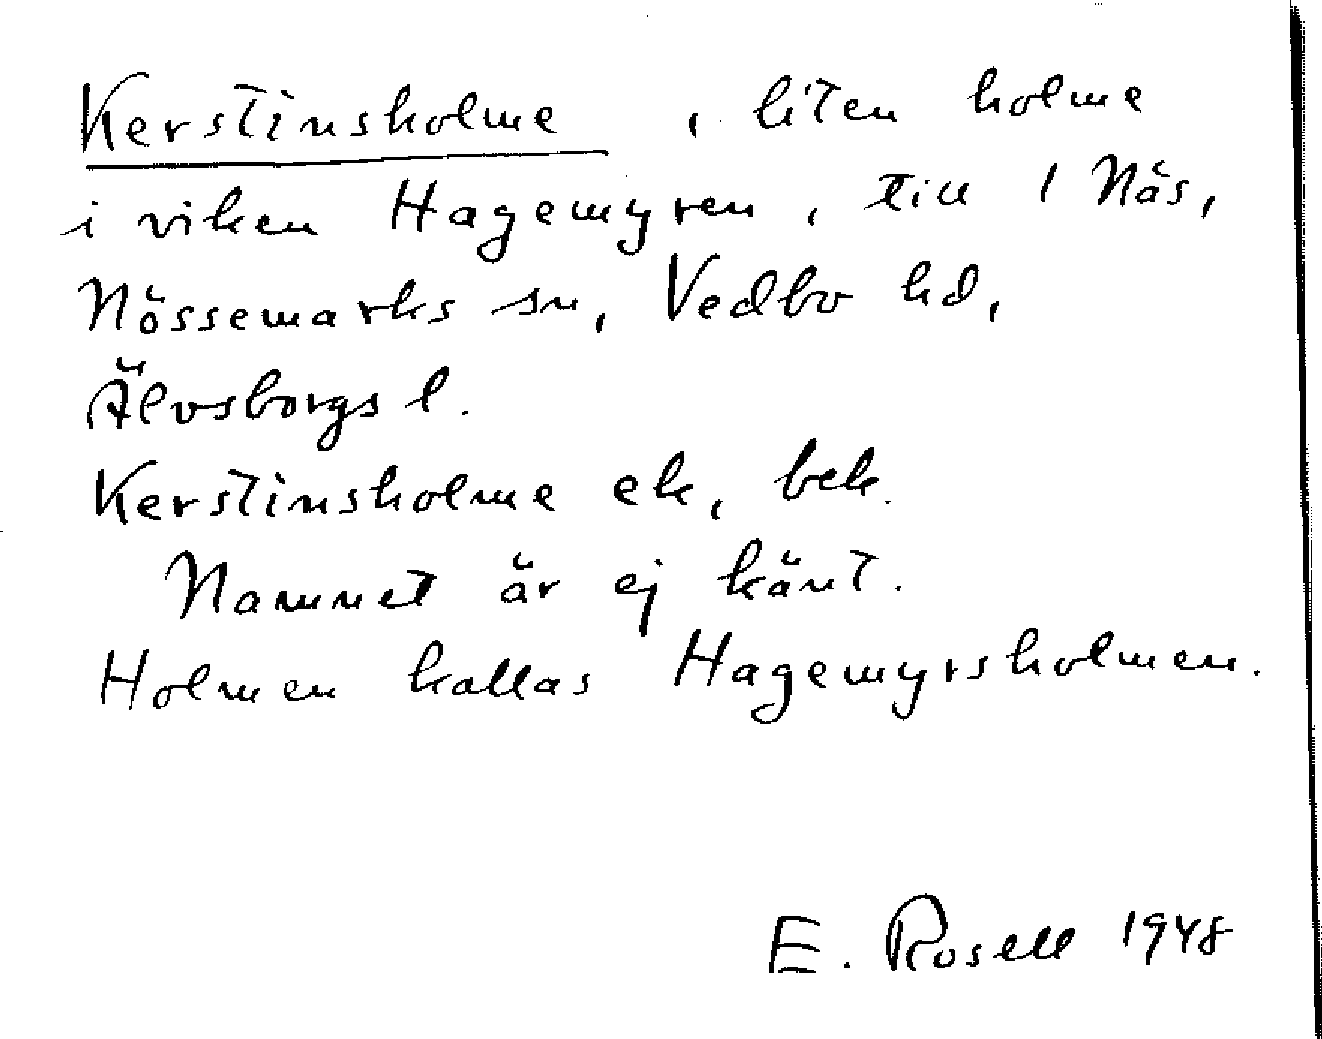 Kerstinsholme, liten holme
i viken Hagemyren, till 1 Näs,
Nössemarks sn, Vedbo hd,
Älvsborgs l.
Kerstinsholme ek, bek.
Namnet är ej känt.
Holmen kallas Hagemyrsholmen.
E. Rosell 1948